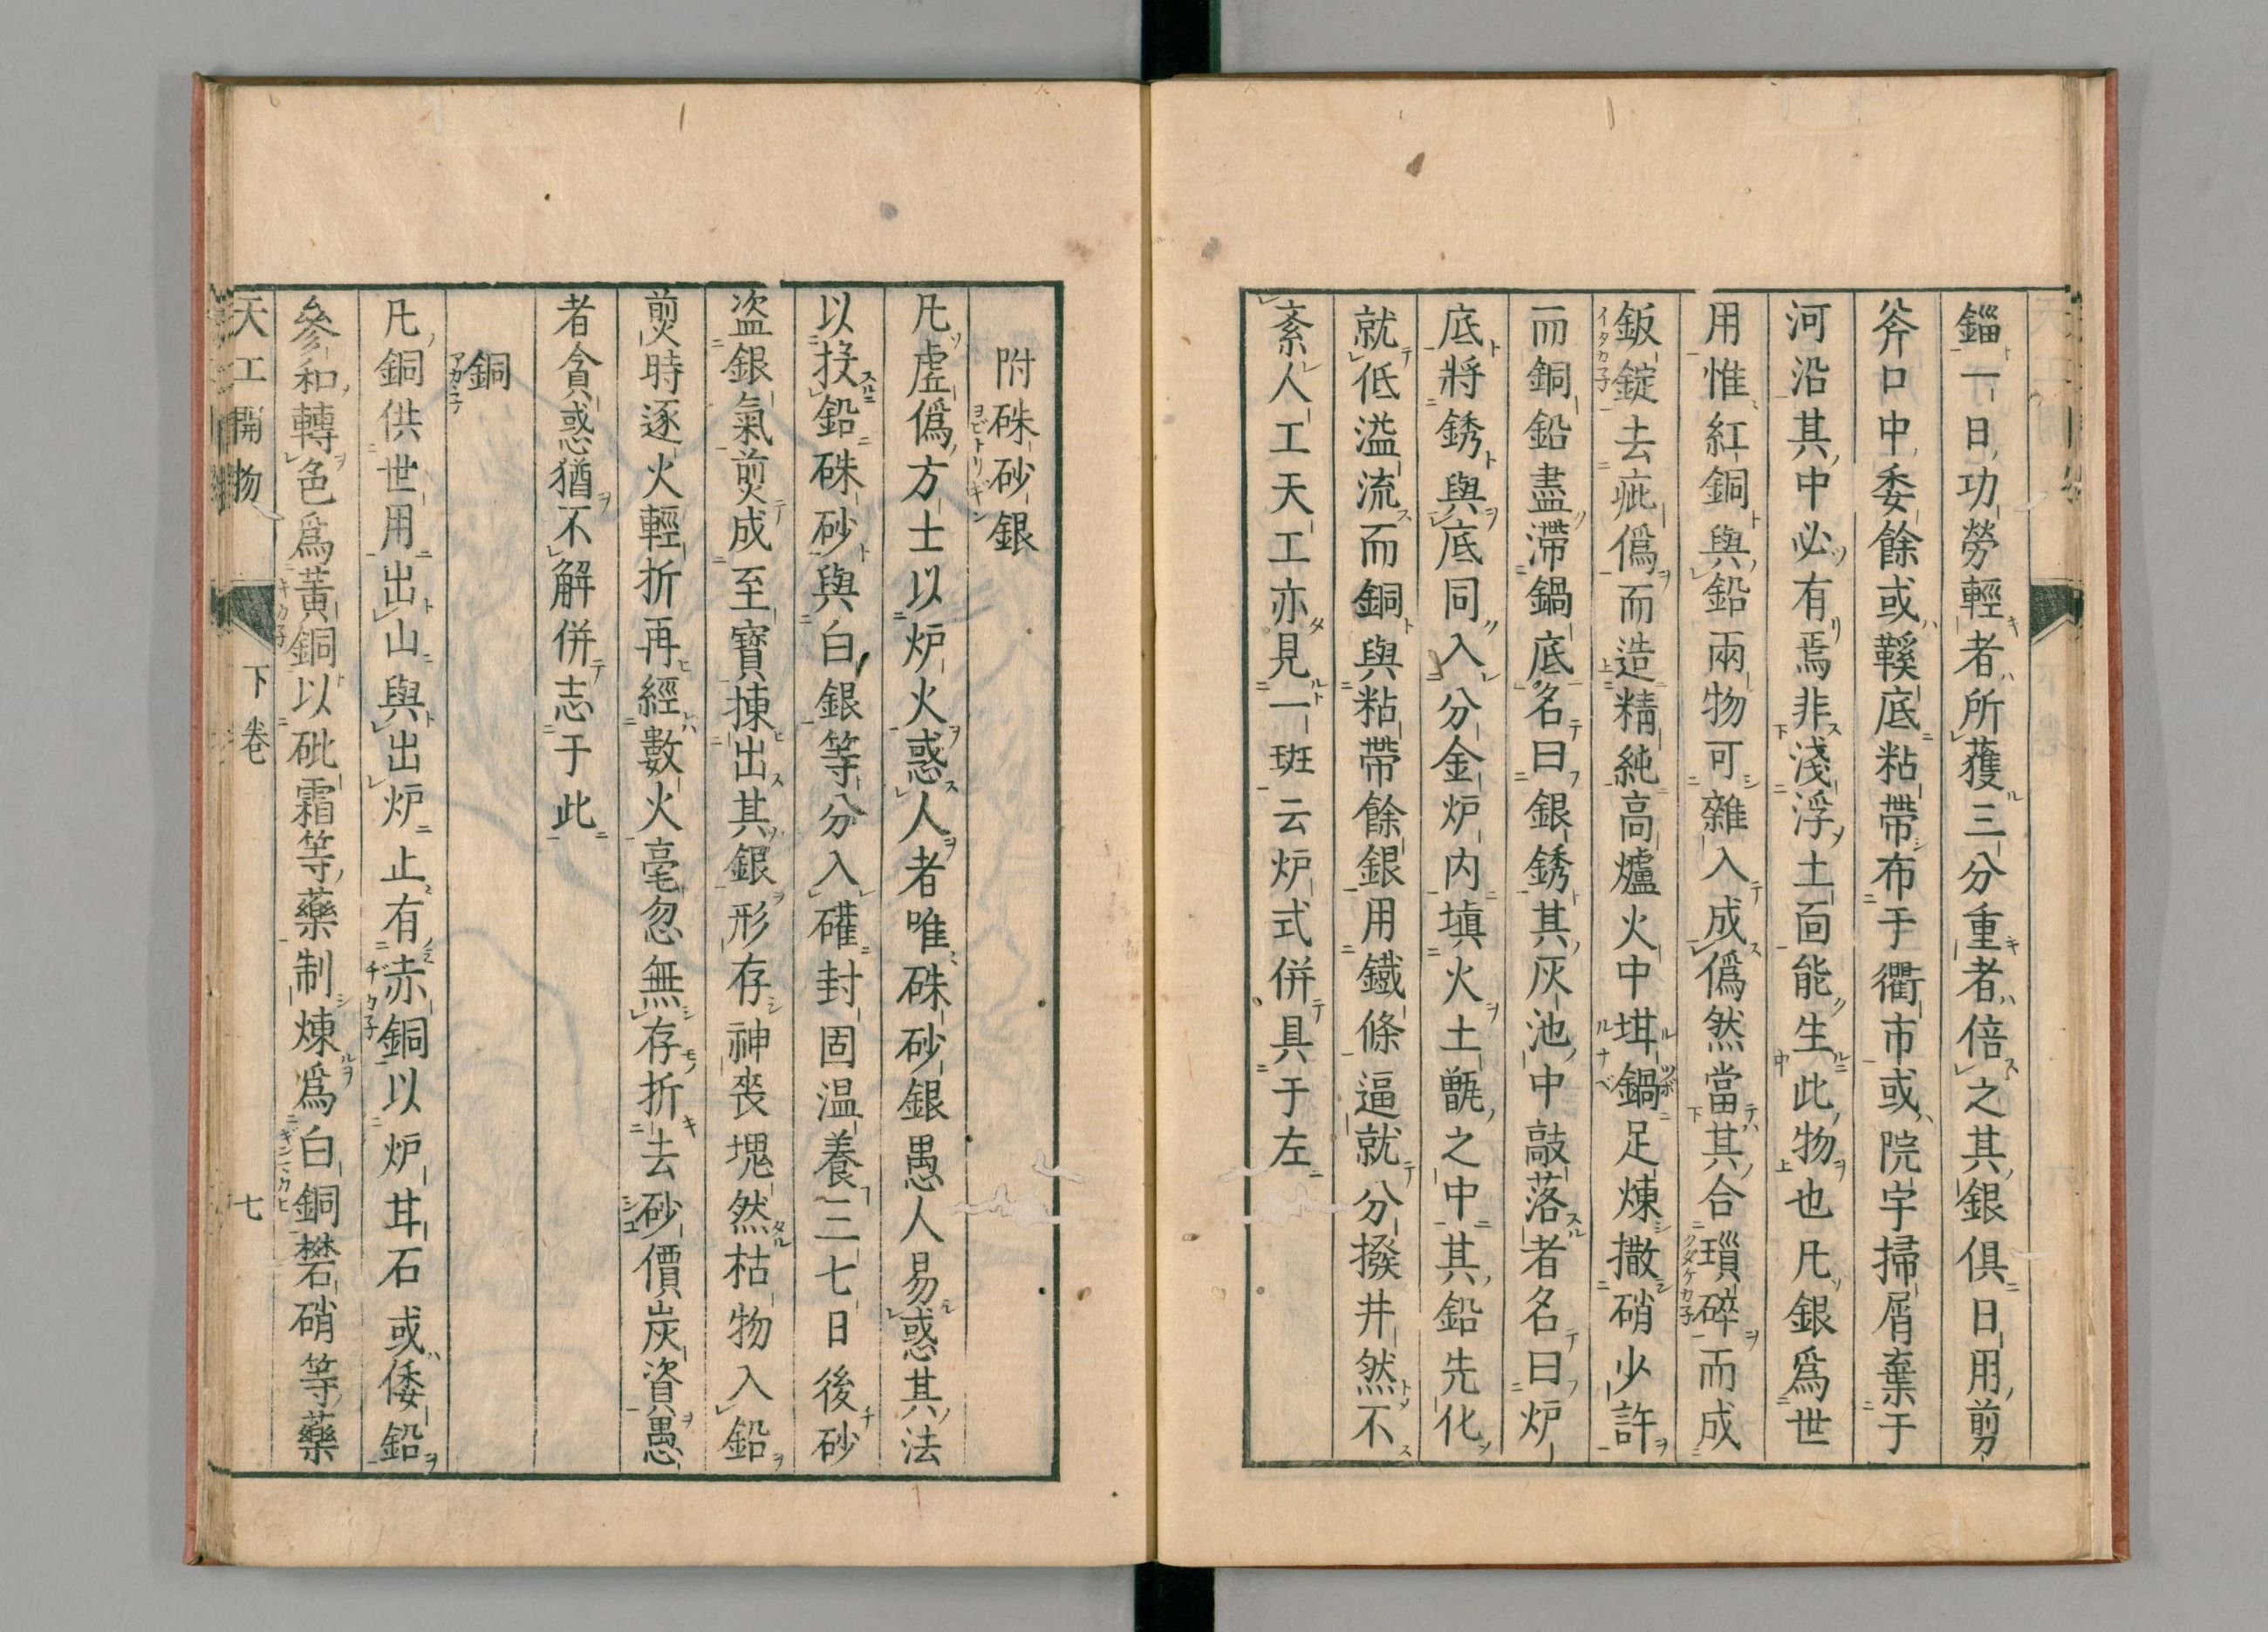 錙一日功勞輕者所獲三分重者倍之其銀俱日用剪
斧口中委餘或鞵底粘帶布于衢市或院宇掃屑棄于
河沿其中必有焉非淺浮土面能生此物也凡銀爲世
用惟紅銅與鉛兩物可雜入成僞然當其合瑣碎而成
鈑錠去疵僞而造精純高爐火中坩鍋足煉撒硝少許
而銅鉛盡滯鍋底名曰銀銹其灰池中敲落者名曰炉
底將銹與底同入分金炉内填火土甑之中其鉛先化
就低溢流而銅與粘帶餘銀用鐵條逼就分撥井然不
紊人工天工亦見一斑云炉式併具于左
附硃砂銀
凡虛僞方士以炉火惑人者唯硃砂銀愚人易惑其法
以投鉛硃砂與白銀等分入礶封固温養三七日後砂
盗銀氣煎成至寶揀出其銀形存神喪塊然枯物入鉛
煎時逐火輕折再經數火毫忽無存折去砂價炭資愚
者貪惑猶不解併志于此
銅
凡銅供世用出山與出炉止有赤銅以炉甘石或倭鉛
參和轉色爲黃銅以砒霜等藥制煉爲白銅礬硝等藥
天工開物 下卷 七